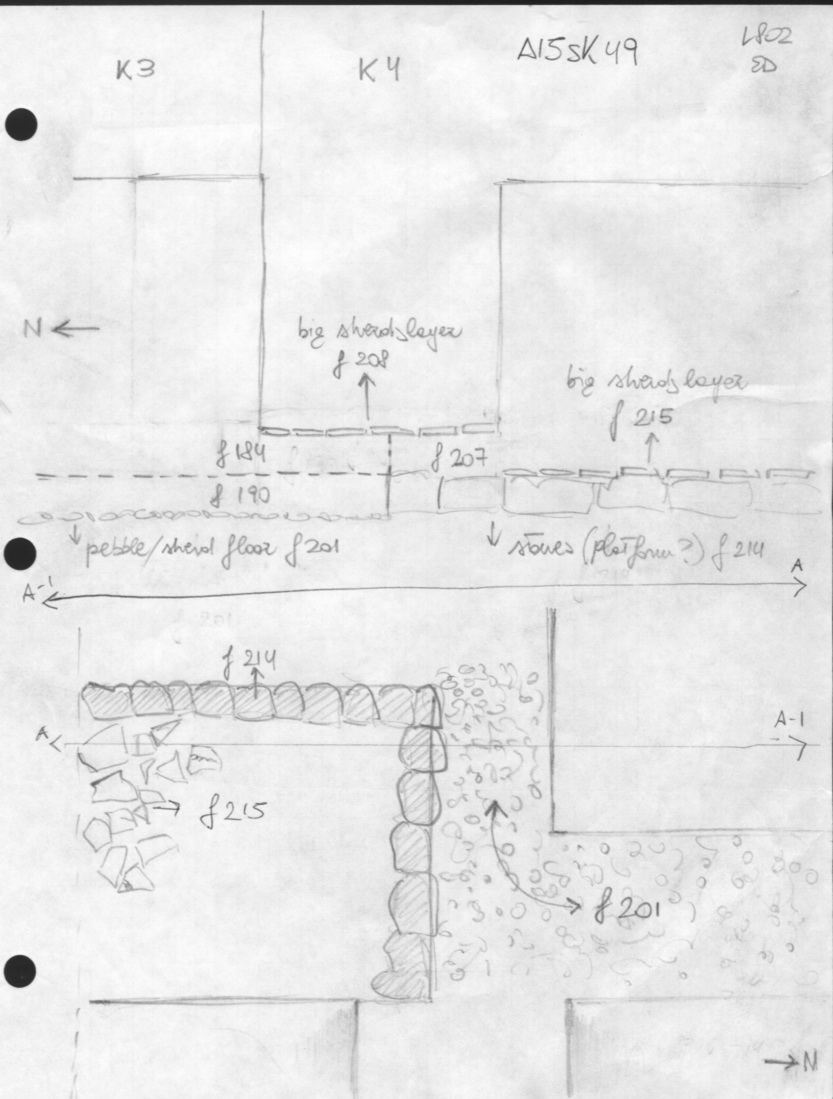 K3
K4
A15SK49
L802
ED
N
big sherds layer
f 208
big sherds layer
f 215
f 184
f 207
f 190
pebble/sherd floor f 201
stones (platform?) f 214
A-1
A
f 214
A
A-1
f 215
f 201
N